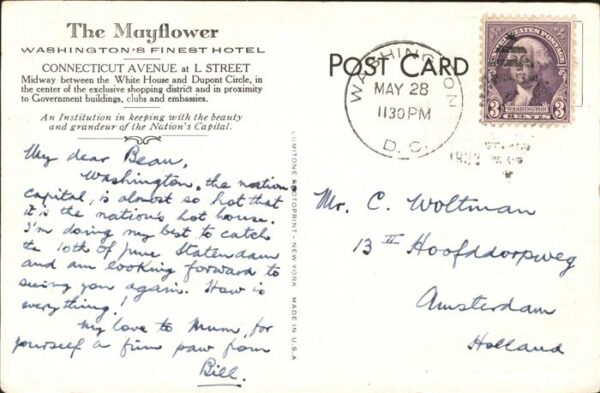 The Mayflower
WASHINGTON'S FINEST HOTEL
CONNECTICUT AVENUE at L STREET
Midway between the White House and Dupont Circle, in
the center of the exclusive shopping district and in proximity
to Government buildings, clubs and embassies.
An Institution in keeping with the beauty
and grandeur of the Nation's Capital.
My dear Bean,
Washington, the nation
capital, is almost so hot that
it is the nation's hot house.
I'm doing my best to catch
the 10th of June Statendam
and am looking forward to
seeing you again. How is
everything!
My love to Mum, for
yourself a firm paw from
Bill.
LUMITONE PHOTOPRINT - NEW YORK MADE IN U.S.A
POST CARD
WASHINGTON
MAY 28
1130 PM
D.C.
UNITED STATES POSTAGE
3 WASHINGTON 3
CENTS
Mr. C. Woltman
13 II Hoofddorpweg
Amsterdam
Holland